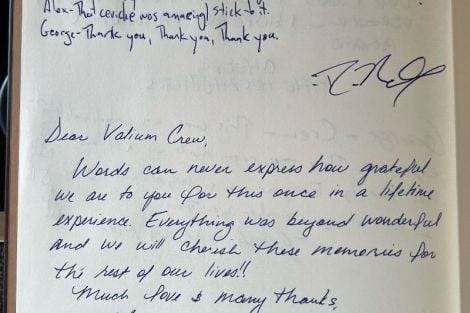 Alex-That ceviche was amazing! stick to it.
George-Thank you, Thank you, Thank you.
Dear Valium Crew,
Words can never express how grateful
we are to you for this once in a lifetime
experience. Everything was beyond wonderful
and we will cherish these memories for
the rest of our lives!!
Much love & many thanks,